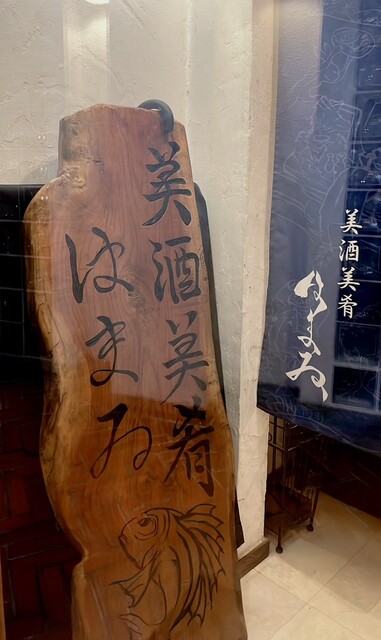 美酒美肴
はまゐ
美酒美肴
はまゐ